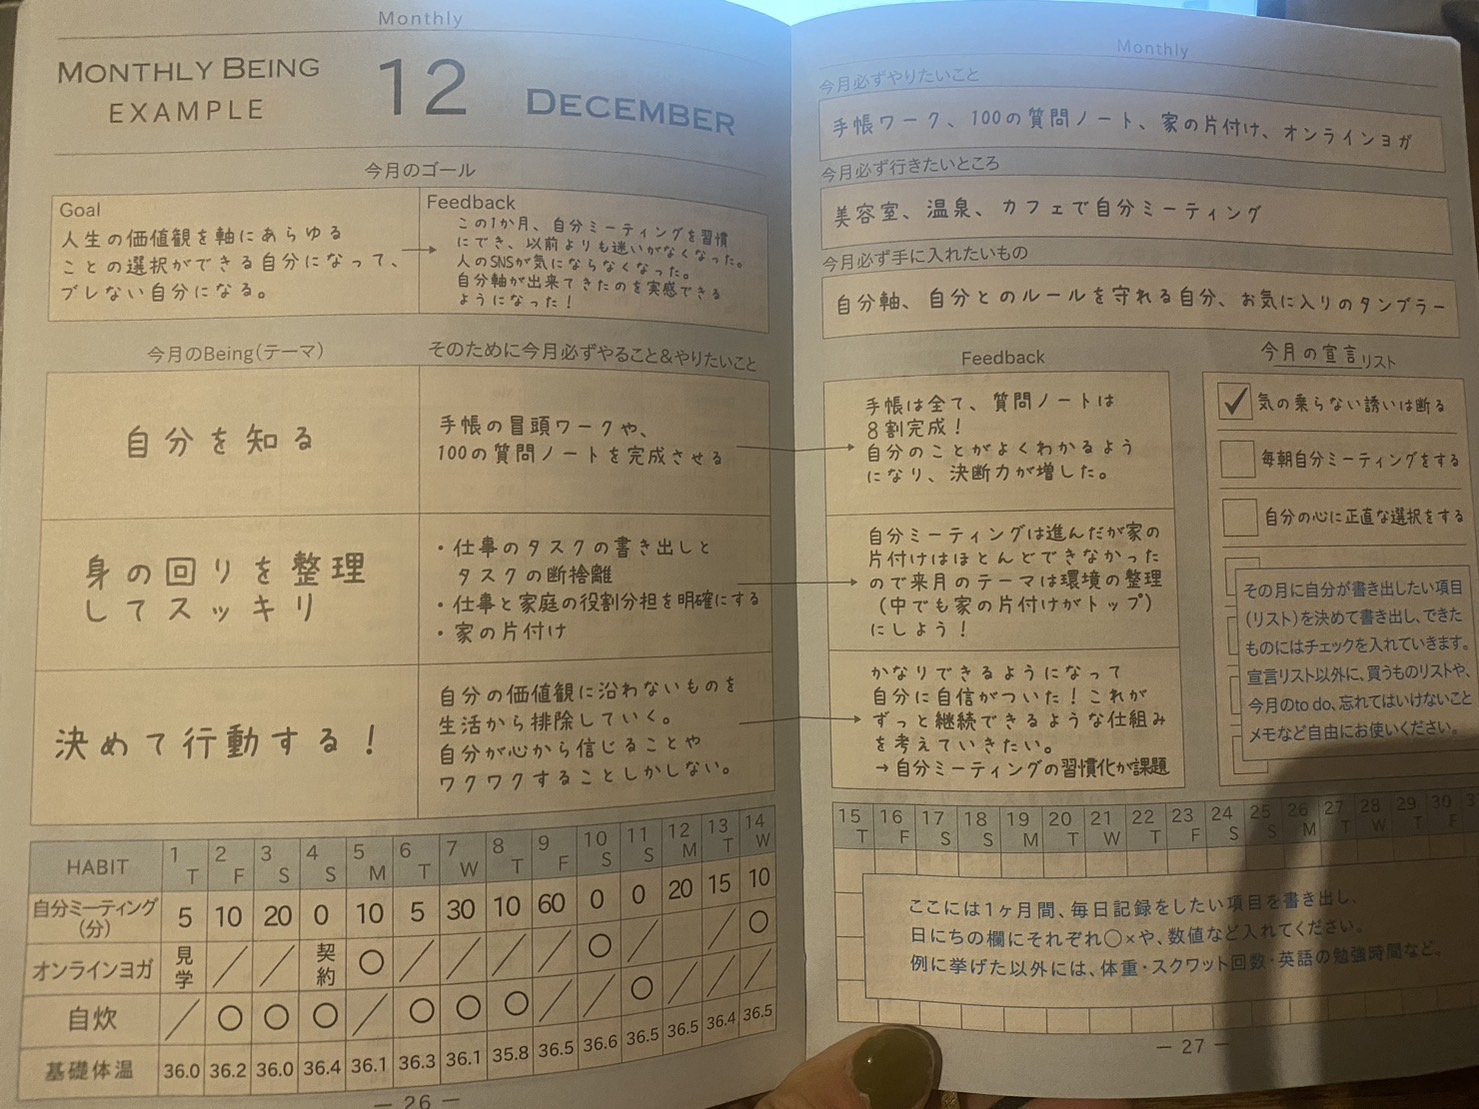 Monthly
MONTHLY BEING
EXAMPLE
12 DECEMBER
今月のゴール
Goal
人生の価値観を軸にあらゆる
ことの選択ができる自分になって、
ブレない自分になる。
Feedback
この1か月、自分ミーティングを習慣
にでき、以前よりも迷いがなくなった。
人のSNSが気にならなくなった。
自分軸が出来てきたのを実感できる
ようになった！
今月のBeing(テーマ)
そのために今月必ずやること&やりたいこと
自分を知る
手帳の冒頭ワークや、
100の質問ノートを完成させる
身の回りを整理
してスッキリ
・仕事のタスクの書き出しと
タスクの断捨離
・仕事と家庭の役割分担を明確にする
・家の片付け
決めて行動する！
自分の価値観に沿わないものを
生活から排除していく。
自分が心から信じることや
ワクワクすることしかしない。
HABIT 1 T 2 F 3 S 4 S 5 M 6 T 7 W 8 T 9 F 10 S 11 S 12 M 13 T 14 W
自分ミーティング(分) 5 10 20 0 10 5 30 10 60 0 0 20 15 10
オンラインヨガ 見学 ／ ／ 契約 ○ ／ ／ ／ ／ ○ ／ ／ ○
自炊 ／ ○ ○ ○ ／ ○ ○ ○ ／ ／ ○ ／ ／ ／
基礎体温 36.0 36.2 36.0 36.4 36.1 36.3 36.1 35.8 36.5 36.6 36.5 36.5 36.4 36.5
— 26 —
Monthly
今月必ずやりたいこと
手帳ワーク、100の質問ノート、家の片付け、オンラインヨガ
今月必ず行きたいところ
美容室、温泉、カフェで自分ミーティング
今月必ず手に入れたいもの
自分軸、自分とのルールを守れる自分、お気に入りのタンブラー
Feedback
手帳は全て、質問ノートは
8割完成！
自分のことがよくわかるよう
になり、決断力が増した。
自分ミーティングは進んだが家の
片付けはほとんどできなかった
ので来月のテーマは環境の整理
(中でも家の片付けがトップ)
にしよう！
かなりできるようになって
自分に自信がついた！これが
ずっと継続できるような仕組み
を考えていきたい。
→自分ミーティングの習慣化が課題
今月の宣言リスト
✓ 気の乗らない誘いは断る
毎朝自分ミーティングをする
自分の心に正直な選択をする
その月に自分が書き出したい項目
(リスト)を決めて書き出し、できた
ものにはチェックを入れていきます。
宣言リスト以外に、買うものリストや、
今月のto do、忘れてはいけないこと
メモなど自由にお使いください。
15 T 16 F 17 S 18 S 19 M 20 T 21 W 22 T 23 F 24 S 25 S 26 M 27 T 28 W 29 T 30 F
ここには1ヶ月間、毎日記録をしたい項目を書き出し、
日にちの欄にそれぞれ○×や、数値など入れてください。
例に挙げた以外には、体重・スクワット回数・英語の勉強時間など。
— 27 —